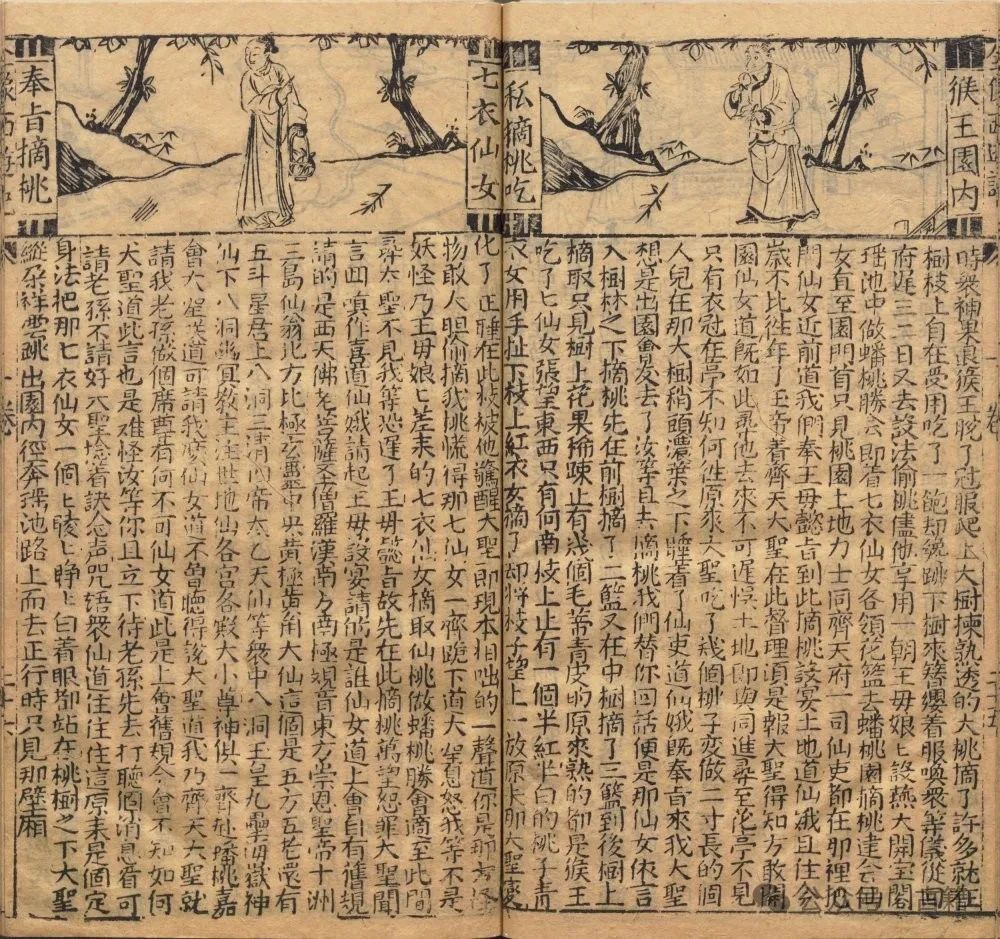 猴王園內
私摘桃吃
時衆神果退猴王脫了冠服爬上大樹揀熟透的大桃摘了許多就在
樹枝上自在受用吃了一飽却纔跳下樹來簪纓着服喚衆等儀從囬
府遲三二日又去設法偷桃儘他享用一朝王毋娘匕設燕大開宝閣
瑤池中做蟠桃勝会即着七衣仙女各領花籃去蟠桃園摘桃建会七
女直至園門首只見桃園土地力士同齊天府一司仙吏都在那裡把
門仙女近前道我們奉王毋懿旨到此摘桃設宴土地道仙娥且住今
歲不比徃年了玉帝着齊天大聖在此督理湏是報大聖得知方敢開
園仙女道既如此尋他去來不可遲悞土地即與同進尋至花亭不見
只有衣冠在亭不知何徃原來大聖吃了幾個桃子变做二寸長的個
人兒在那大樹稍頭濃葉之下睡着了仙吏道仙娥既奉旨來我大聖
想是出園會友去了汝等且去摘桃我們替你回話便是那仙女依言
入樹林之下摘桃先在前樹摘了二籃又在中樹摘了三籃到後樹上
摘取只見樹上花果稀踈止有幾個毛蒂青皮的原來熟的都是猴王
吃了七仙女張望東西只有向南枝上止有一個半紅半白的桃子青
衣女用手扯下枝上紅衣女摘了却將枝子望上一放原來那大聖變
七衣仙女
奉旨摘桃
化了正睡在此枝被他驚醒大聖即現本相咄的一聲道你是那方怪
物敢大胆偷摘我桃慌得那七仙女一齊跪下道大聖息怒我等不是
妖怪乃王毋娘匕差來的七衣仙女摘取仙桃做蟠桃勝會適至此間
尋大聖不見我等恐遲了王毋懿旨故先在此摘桃萬望恕罪大聖聞
言囬嗔作喜道仙娥請起王毋設宴請的是誰仙女道上會自有舊規
請的是西天佛老菩薩聖僧羅漢南方南極觀音東方崇恩聖帝十洲
三島仙翁北方北極玄靈中央黄極黄角大仙這個是五方五老還有
五斗星君上八洞三清四帝太乙天仙等衆中八洞玉皇九壘海嶽神
仙下八洞幽冥教主注世地仙各宮各殿大小尊神俱一齊赴蟠桃嘉
會大聖笑道可請我麼仙女道不曾聽得說大聖道我乃齊天大聖就
請我老孫做個席尊有何不可仙女道此是上會舊規今會不知如何
大聖道此言也是难怪汝等你且立下待老孫先去打聽個消息看可
請老孫不請好大聖捻着訣念声咒语衆仙道住住住這原來是個定
身法把那七衣仙女一個匕睖匕睜匕白着眼都站在桃樹之下大聖
縱朶祥雲跳出園內徑奔瑤池路上而去正行時只見那壁廂